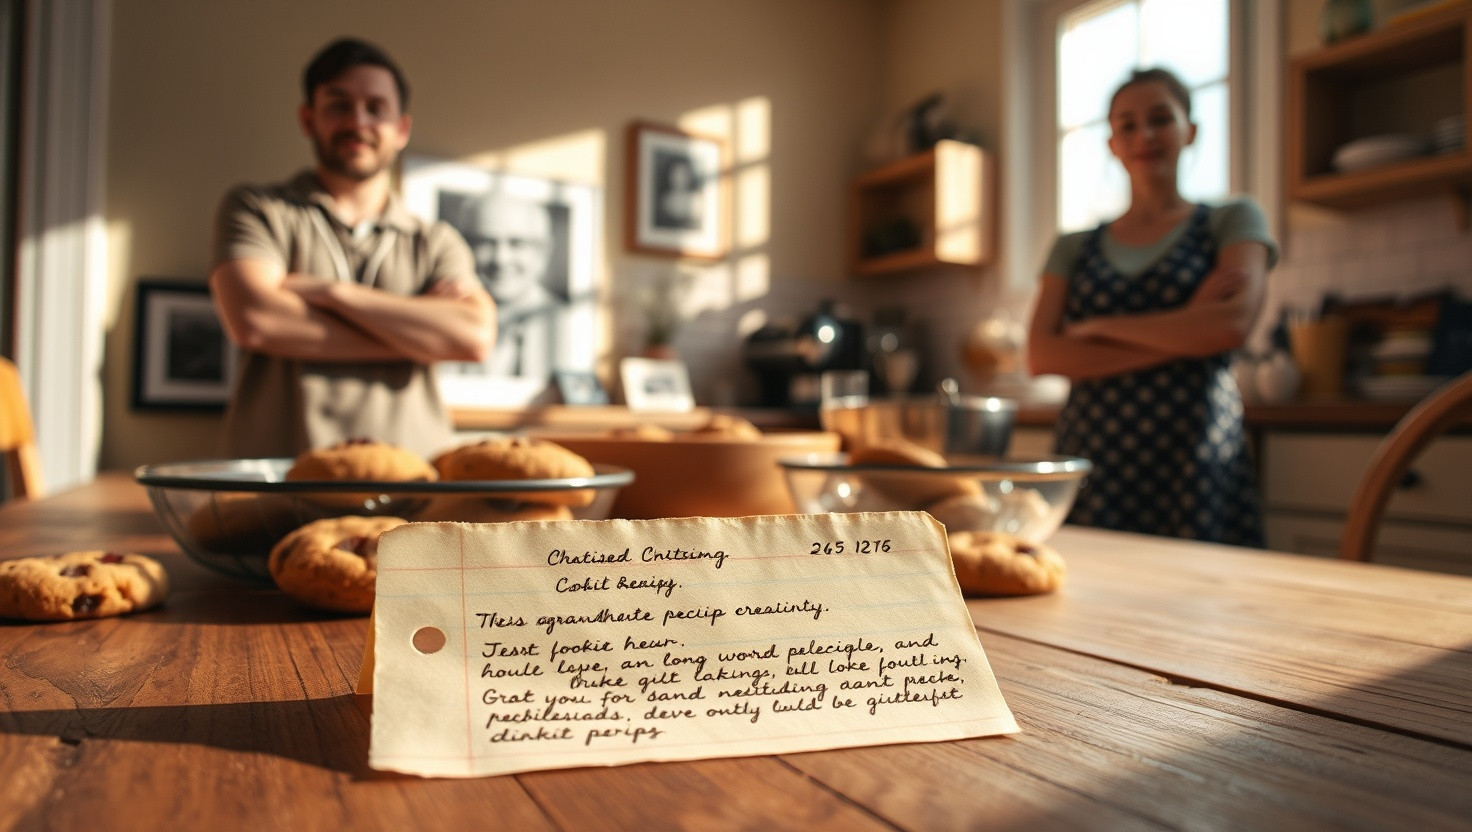 Chatised Cnitsimg. 265 1276
Cohit Recipy.
This agranthate peciip crealinty.
Jesst fookie heur.
houle lope, an long word pelecigle, and
Druke gilt lakings, ell loke foutl ing.
Grat you for sand nestitiding aant peche,
pecbilesiads, deve ontly luld be gitterfst
dinkit peripy